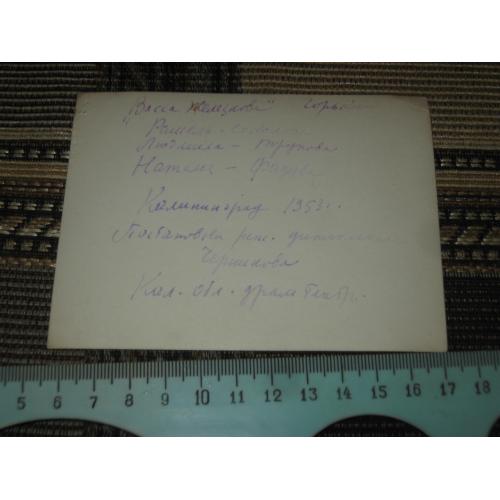 "Васса Железнова" Горький
Рашель - Соколова
Людмила - Трунова
Наталья -
Калининград 1953 г.
Постановка реж.
Чернякова
Кал. обл. драм театр.
5 6 7 8 9 10 11 12 13 14 15 16 17 18